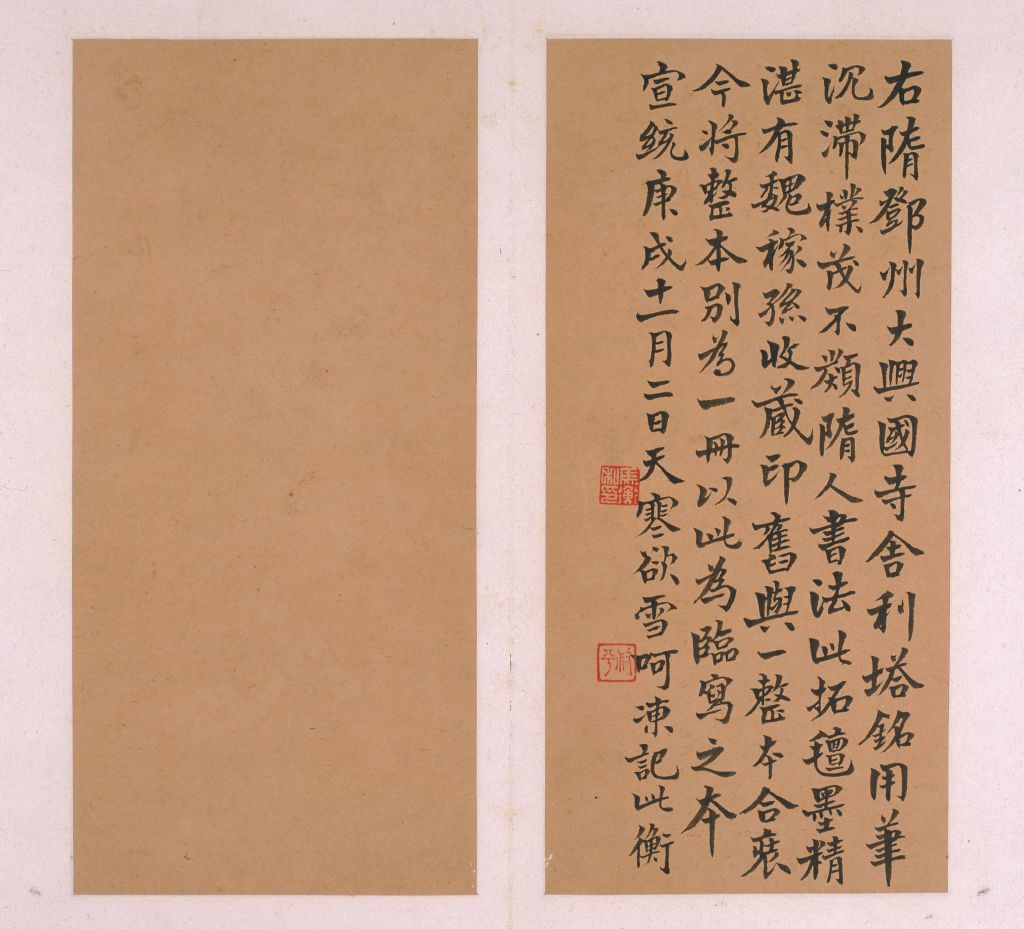 右隋鄧州大興國寺舍利塔銘用筆
沉滯樸茂不類隋人書法此拓氊墨精
湛有魏稼孫收藏印舊與一整本合裱
今將整本別為一冊以此為臨寫之本
宣統庚戌十一月二日天寒欲雪呵凍記此衡
馬衡
叔平